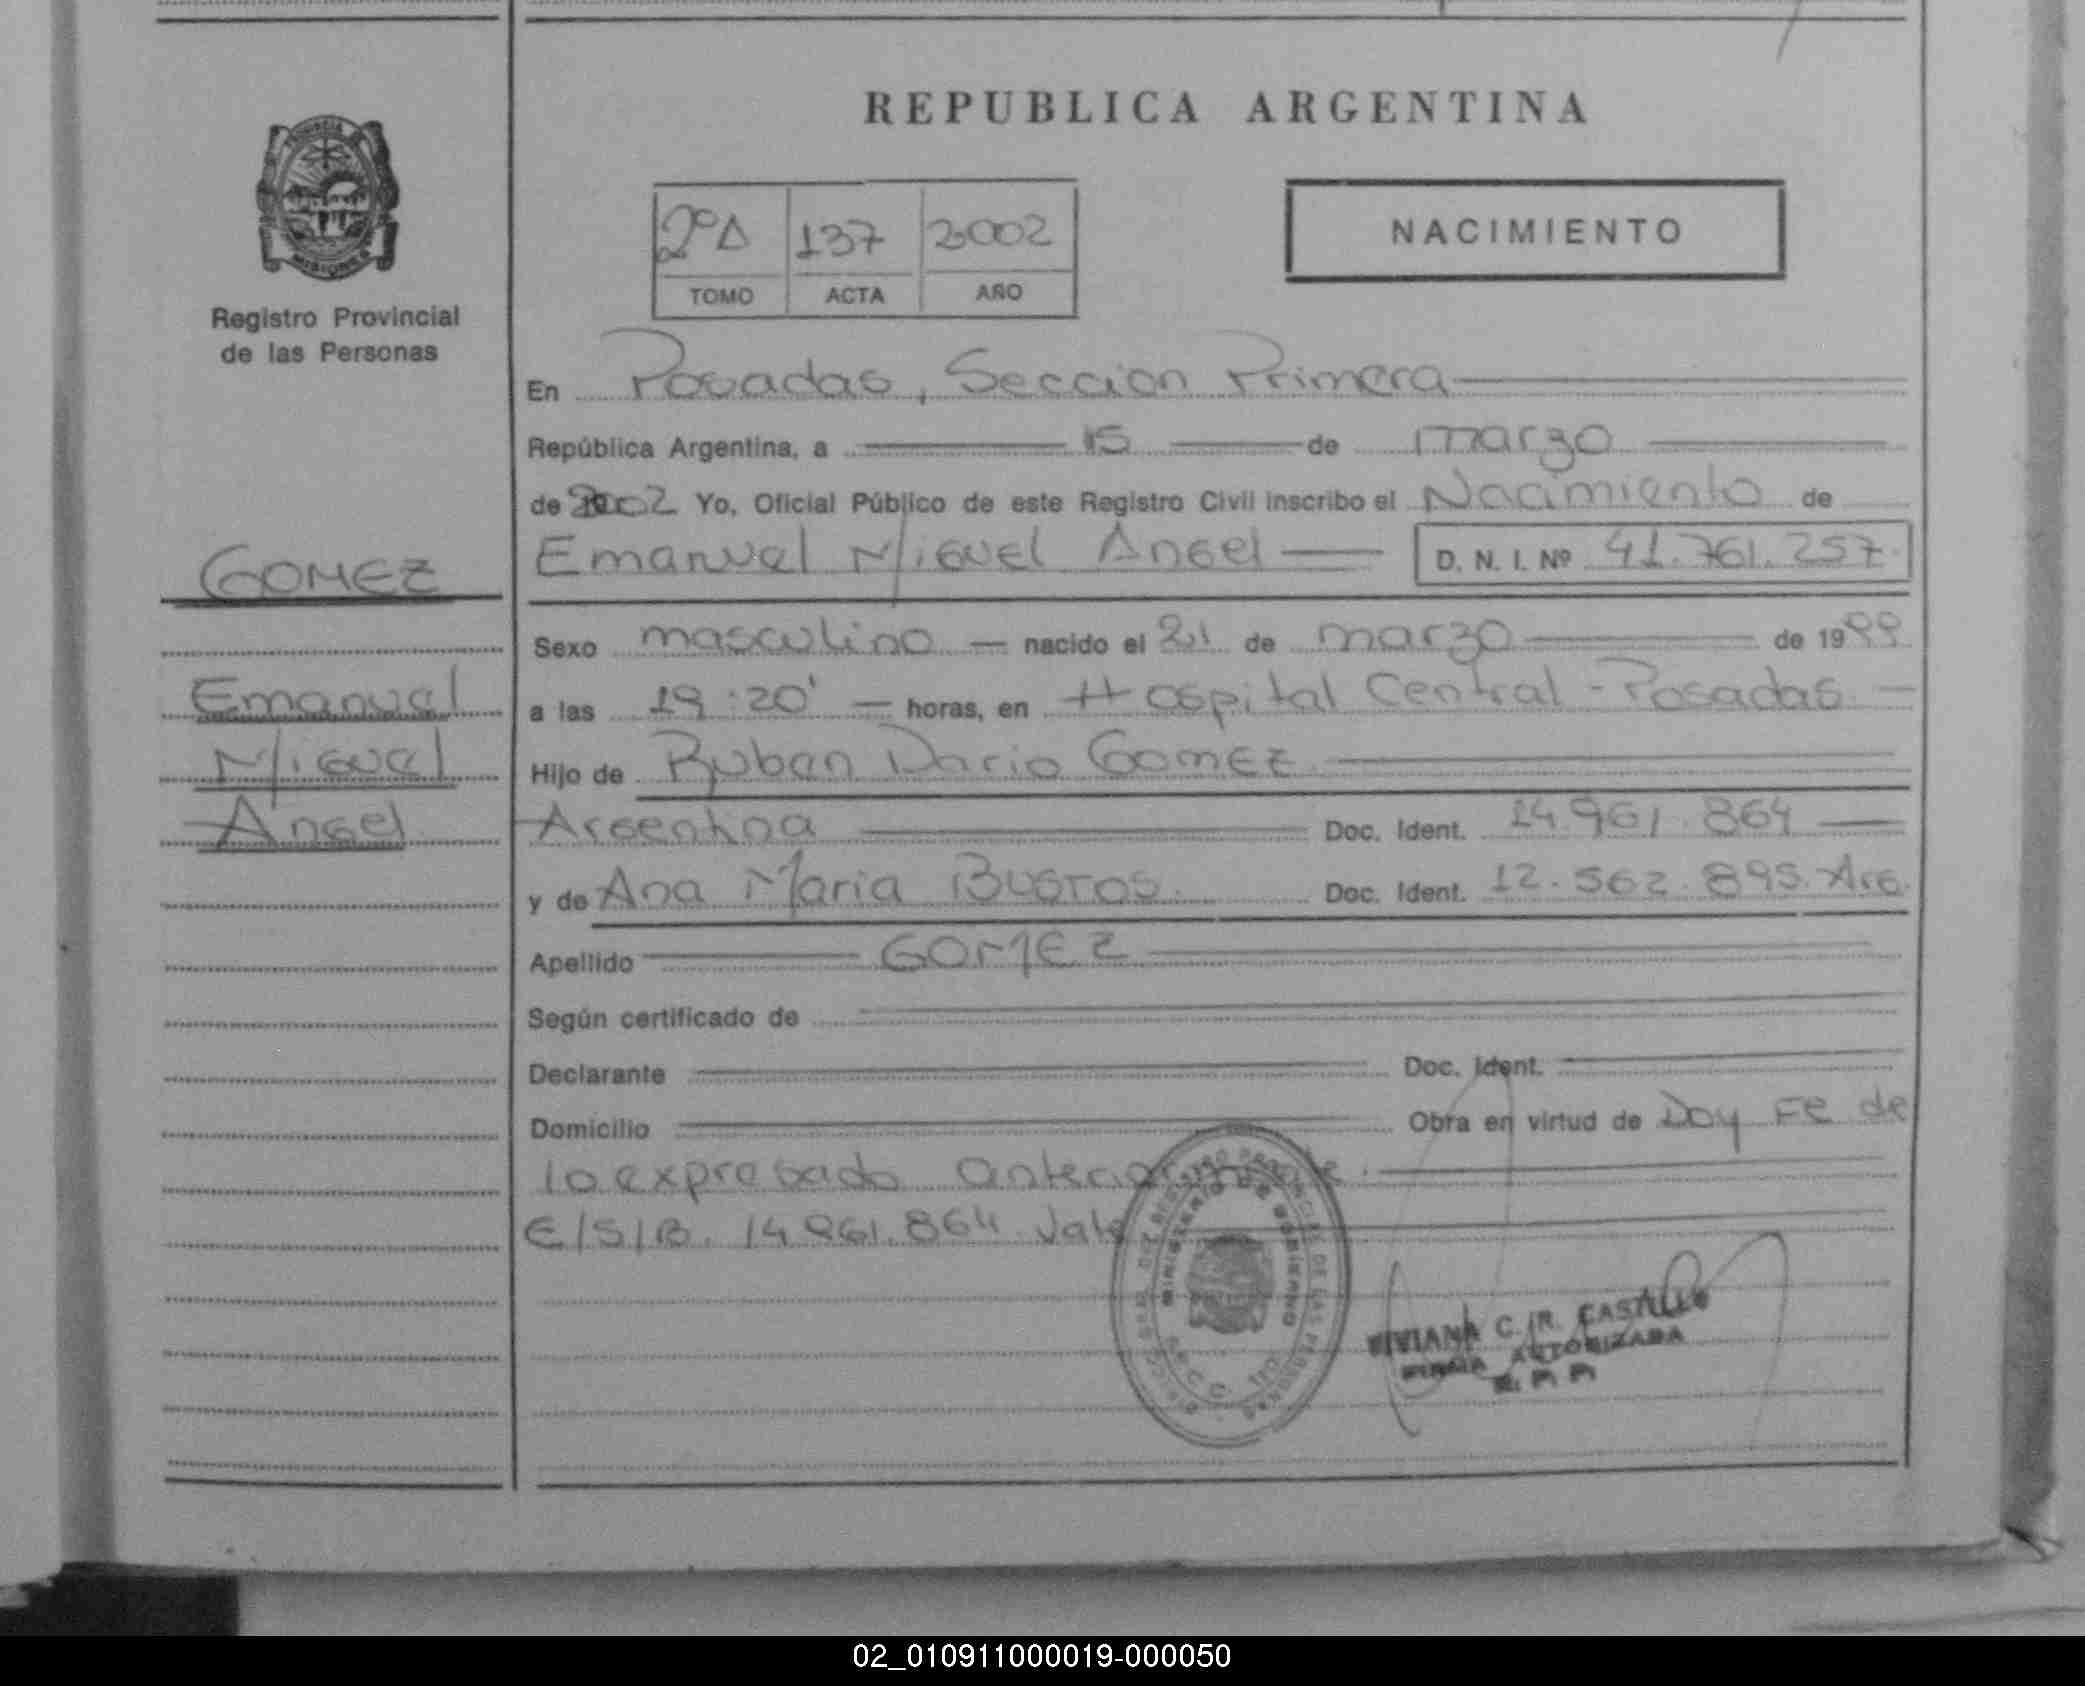 REPUBLICA ARGENTINA
PROVINCIA
MISIONES
Registro Provincial
de las Personas
2º A 137 2002
TOMO ACTA AÑO
NACIMIENTO
En Posadas, Seccion Primera
República Argentina, a 15 de marzo
de 2002 Yo, Oficial Público de este Registro Civil inscribo el Nacimiento de
GOMEZ
Emanuel Miguel Angel D. N. I. Nº 41.761.257
Sexo masculino nacido el 21 de marzo de 1999
Emanuel
Miguel
Angel
a las 19:20' horas, en Hospital Central - Posadas
Hijo de Ruben Dario Gomez
Argentina Doc. Ident. 14.961.864
y de Ana Maria Bustos. Doc. Ident. 12.562.895. Arg.
Apellido GOMEZ
Según certificado de
Declarante Doc. Ident.
Domicilio Obra en virtud de Doy Fe de
lo expresado anteriormente.
E/S/B. 14.961.864 Vale
MINISTERIO DE GOBIERNO
VIVIANA C. R. CASTILLO
FIRMA AUTORIZADA
R. P. P.
02_010911000019-000050